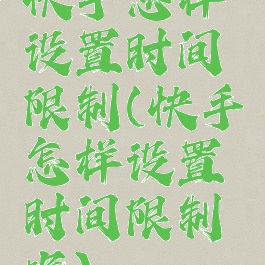 快手怎样
设置时间
限制(快手
怎样设置
时间限制
呢)